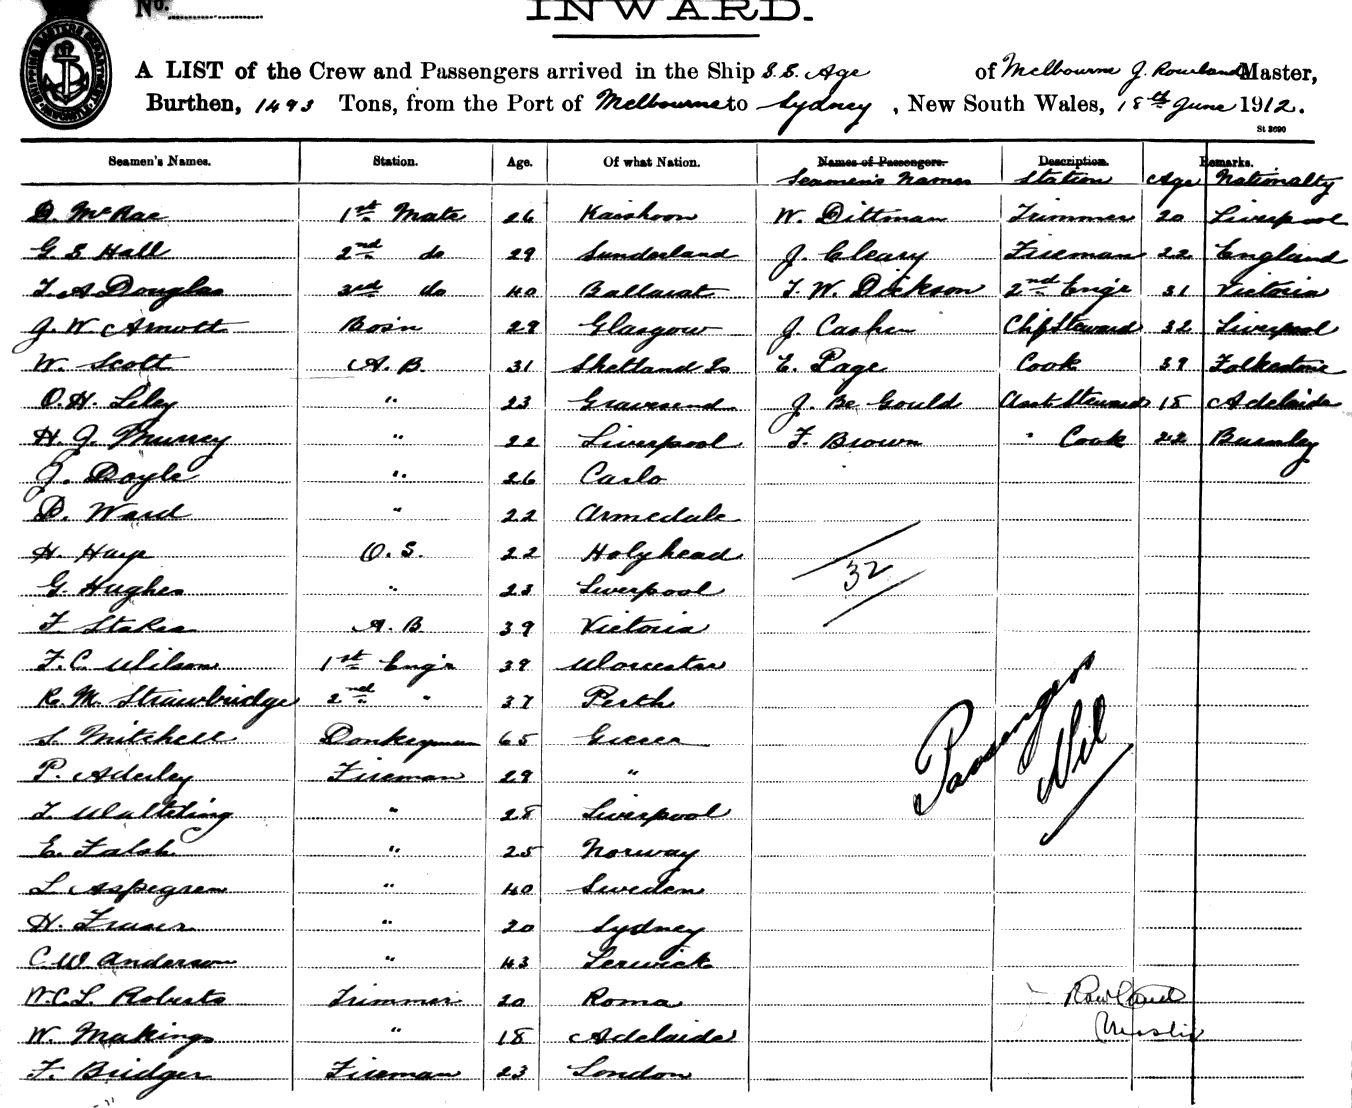 No.
INWARD.
A LIST of the Crew and Passengers arrived in the Ship S.S. Age of Melbourne J. Rowland Master,
Burthen, 1493 Tons, from the Port of Melbourne to Sydney, New South Wales, 18th June 1912.
St 3690
Seamen's Names. Station. Age. Of what Nation. Names of Passengers. Description. Remarks.
Seamen's Names Station Age Nationalty
D. McRae 1st Mate 26 W. Dittman Trimmer 20 Liverpool
G. S. Hall 2nd do 29 Sunderland J. Cleary Fireman 22 England
T. A. Douglas 3rd do 40 Ballarat T. W. Dickson 2nd Engr 31 Victoria
J. W. Arnott Bosn 29 Glasgow J. Cashin Chf Steward 32 Liverpool
W. Scott A. B. 31 Shetland Is E. Page Cook 39 Folkestone
O. H. Liley " 23 Gravesend J. Be Gould Asst Steward 18 Adelaide
H. J. Murrey " 22 Liverpool F. Brown " Cook 22 Burnley
J. Doyle " 26 Carlo
D. Ward " 22 Armedale
H. Harp O. S. 22 Holyhead
G. Hughes " 23 Liverpool
F. Stokes A. B. 39 Victoria
F. C. Wilson 1st Engr 39 Worcester
R. M. Strawbridge 2nd " 37 Perth
S. Mitchell Donkeyman 65 Greece
P. Aderley Fireman 29 "
T. " 28 Liverpool
E. Falsh " 25 Norway
L Aspegren " 40 Sweden
H. Fraser " 20 Sydney
C. W. Anderson " 43 Lerwick
W. C. L. Roberts Trimmer 20 Roma
W. Makings " 18 Adelaide
F. Bridger Fireman 23 London
32
Passengers
Nil
Rowland
Master